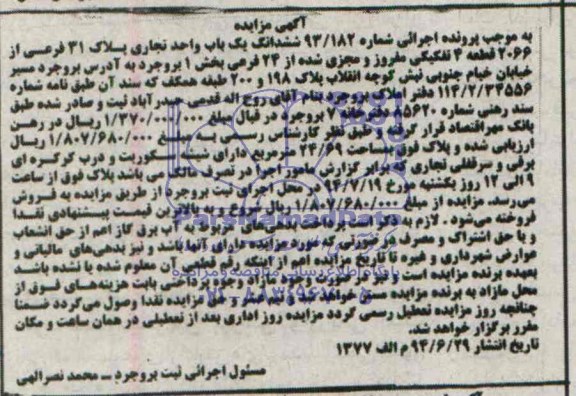 آگهی مزایده
به موجب پرونده اجرائی شماره ۹۳/۱۸۲ ششدانگ یک باب واحد تجاری پلاک ۳۱ فرعی از
۲۰۶۶ قطعه ۴ تفکیکی مفروز و مجزی شده از ۲۴ فرعی بخش ۱ بروجرد به آدرس بروجرد مسیر
خیابان خیام جنوبی نبش کوچه انقلاب پلاک ۱۹۸ و ۲۰۰ طبقه همکف که سند آن طبق نامه شماره
۱۱۴/۲/۳۴۵۵۶ دفتر املاک بروجرد بنام آقای روح اله قدمی حیدرآباد ثبت و صادر شده طبق
سند رهنی شماره ۸۵۶۲۰ دفترخانه ۷ بروجرد در قبال مبلغ ۱/۳۷۰/۰۰۰/۰۰۰ ریال در رهن
بانک مهر اقتصاد قرار گرفته و طبق نظر کارشناس رسمی به مبلغ ۱/۸۰۷/۶۸۰/۰۰۰ ریال
ارزیابی شده و پلاک فوق بمساحت ۲۴/۶۹ مترمربع دارای شیشه سکوریت و درب کرکره ای
برقی و سرقفلی تجاری که برابر گزارش مامور اجرا در تصرف مالک می باشد پلاک فوق از ساعت
۹ الی ۱۲ روز یکشنبه مورخ ۹۴/۷/۱۹ در محل اجرای ثبت بروجرد از طریق مزایده به فروش
می‌رسد. مزایده از مبلغ ۱/۸۰۷/۶۸۰/۰۰۰ ریال شروع و به بالاترین قیمت پیشنهادی نقدا
فروخته می‌شود. لازم به ذکر است پرداخت بدهی‌های مربوط به آب برق گاز اعم از حق انشعاب
و یا حق اشتراک و مصرف در صورتی که مورد مزایده دارای آنها باشد و نیز بدهی‌های مالیاتی و
عوارض شهرداری و غیره تا تاریخ مزایده اعم از اینکه رقم قطعی آن معلوم شده یا نشده باشد
بعهده برنده مزایده است و نیز در صورت وجود مازاد وجوه پرداختی بابت هزینه‌های فوق از
محل مازاد به برنده مزایده مسترد خواهد شد و نیم عشر و حق مزایده نقدا وصول می‌گردد ضمنا
چنانچه روز مزایده تعطیل رسمی گردد مزایده روز اداری بعد از تعطیلی در همان ساعت و مکان
مقرر برگزار خواهد شد.
تاریخ انتشار ۹۴/۶/۲۹ م الف ۱۳۷۷
مسئول اجرائی ثبت بروجرد ــ محمد نصرالهی